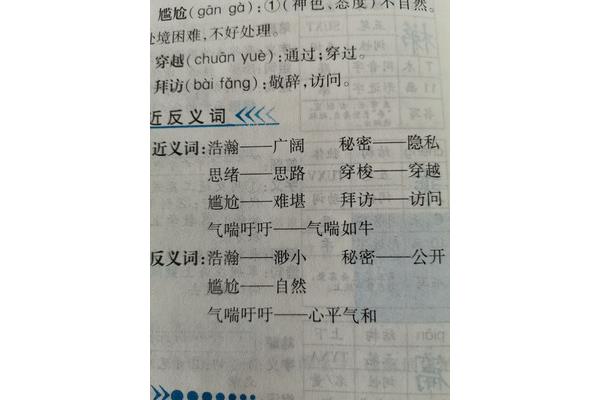 尴尬(gān gà):①(神色、态度)不自然。
处境困难,不好处理。
穿越(chuān yuè):通过;穿过。
拜访(bài fǎng):敬辞,访问。
近反义词
近义词:浩瀚——广阔 秘密——隐私
思绪——思路 穿梭——穿越
尴尬——难堪 拜访——访问
气喘吁吁——气喘如牛
反义词:浩瀚——渺小 秘密——公开
尴尬——自然
气喘吁吁——心平气和